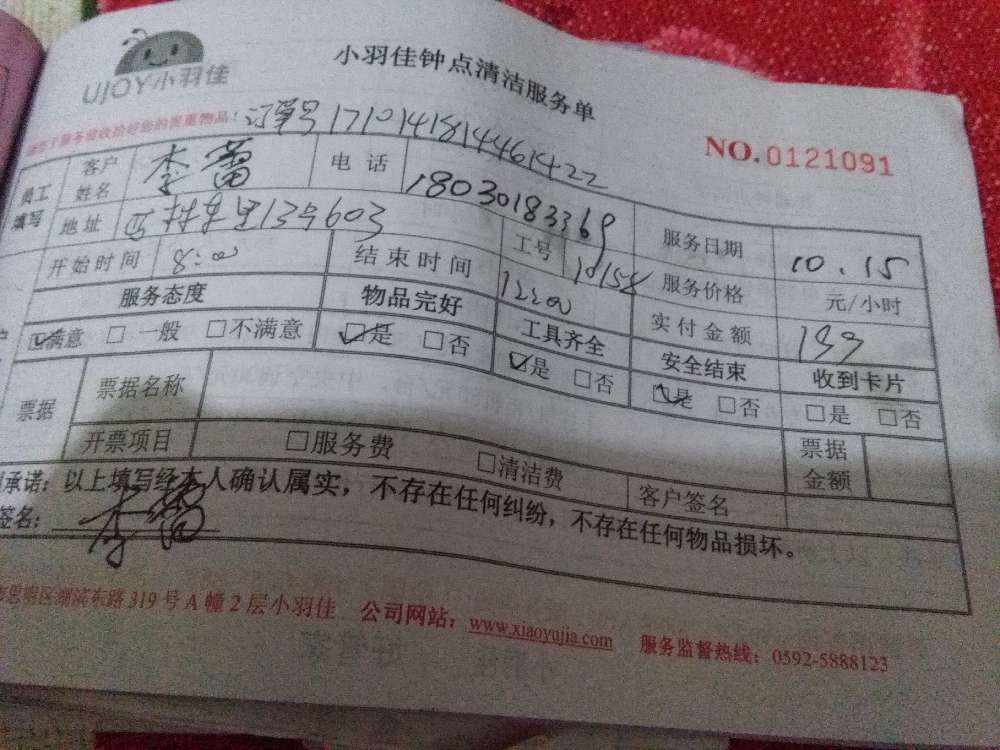 UJOY小羽佳
小羽佳钟点清洁服务单
服务前收拾好您的贵重物品：订单号17101418144461422
NO.0121091
员工填写 客户姓名 李蕾 电话 18030183369 服务日期 10.15
地址 村东里13号603 工号 服务价格 元/小时
开始时间 8:00 结束时间 1200 实付金额 199
服务态度 物品完好 工具齐全 安全结束 收到卡片
☑满意 □一般 □不满意 ☑是 □否 ☑是 □否 ☑是 □否 □是 □否
票据 票据名称 票据金额
开票项目 □服务费 □清洁费 客户签名
承诺：以上填写经本人确认属实，不存在任何纠纷，不存在任何物品损坏。
签名：李蕾
思明区湖滨东路319号A幢2层小羽佳 公司网站：www.xiaoyujia.com 服务监督热线：0592-5888123